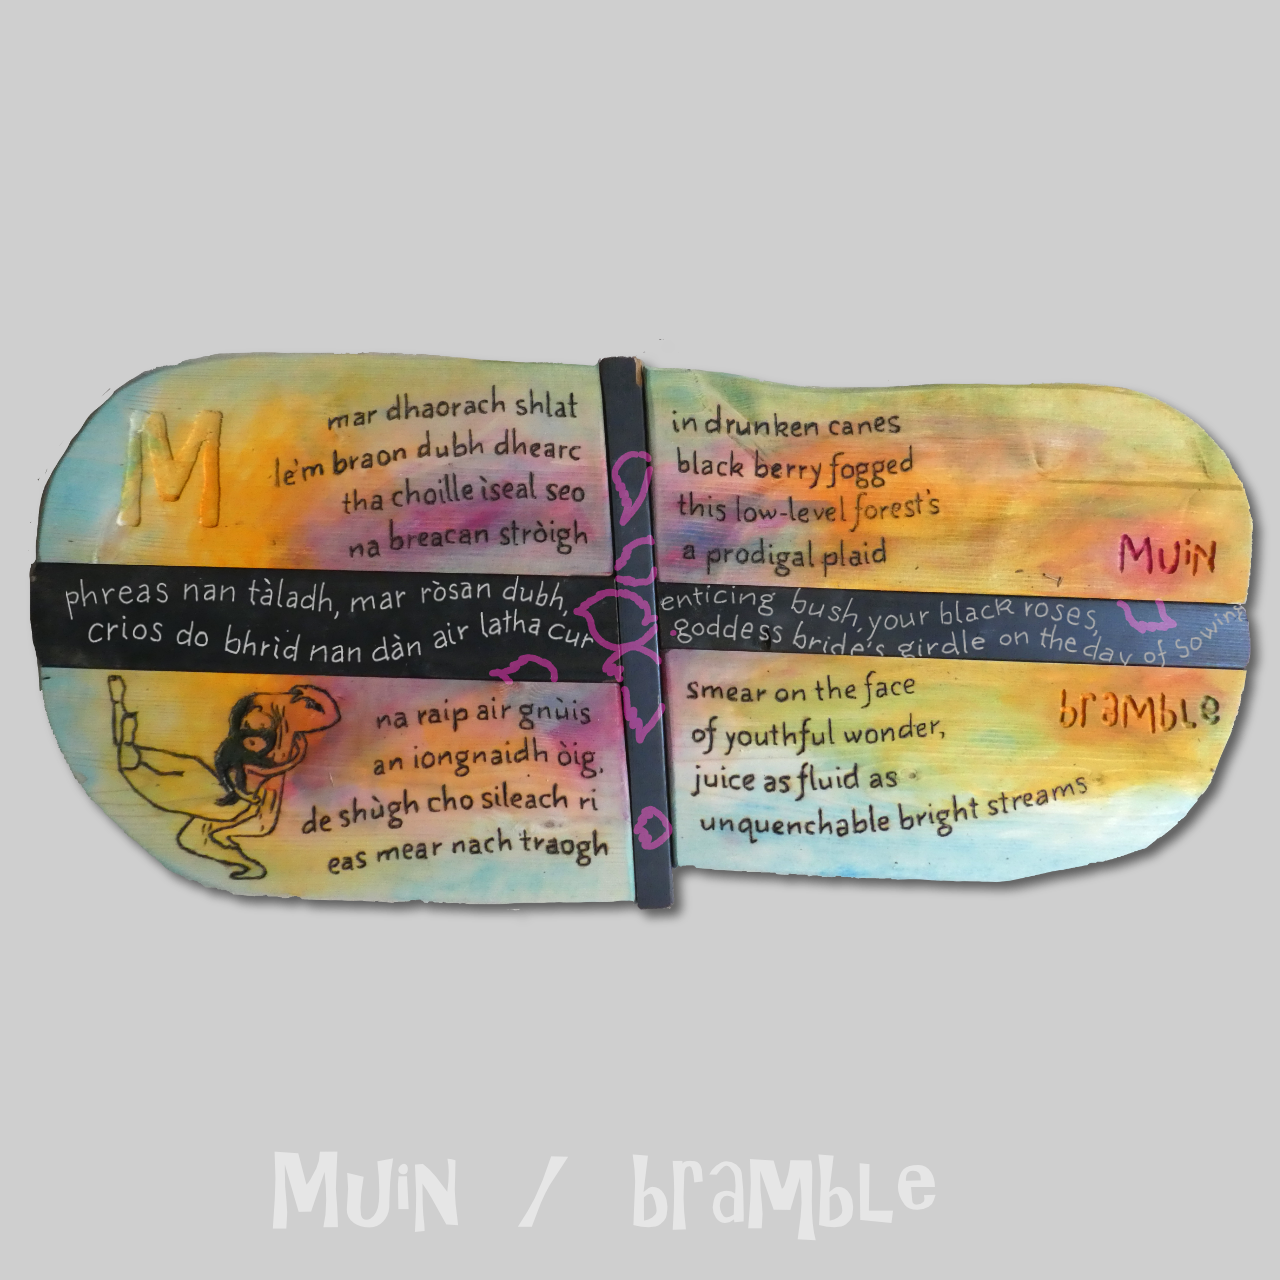 M
mar dhaorach shlat
le'm braon dubh dhearc
tha choille ìseal seo
na breacan stròigh
phreas nan tàladh, mar ròsan dubh,
crios do bhrìd nan dàn air latha cur
na raip air gnùis
an iongnaidh òig,
de shùgh cho sileach ri
eas mear nach traogh
in drunken canes
black berry fogged
this low-level forest's
a prodigal plaid
Muin
enticing bush, your black roses,
goddess bride's girdle on the day of sowing
bramble
smear on the face
of youthful wonder,
juice as fluid as
unquenchable bright streams
Muin / bramble